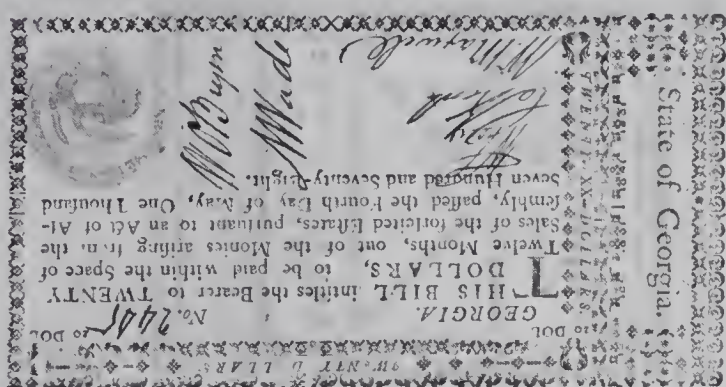 State of Georgia.
TWENTY DOLLARS
TWENTY-XX-DOLLARS
20 DOL
No. 2445 20 DOL
GEORGIA.
THIS BILL intitles the Bearer to TWENTY
DOLLARS, to be paid within the Space of
Twelve Months, out of the Monies arising from the
Sales of the forfeited Estates, pursuant to an Act of As-
sembly, passed the Fourth Day of May, One Thousand
Seven Hundred and Seventy-Eight.
Wm Maxwell
N Wade
W O Bryen